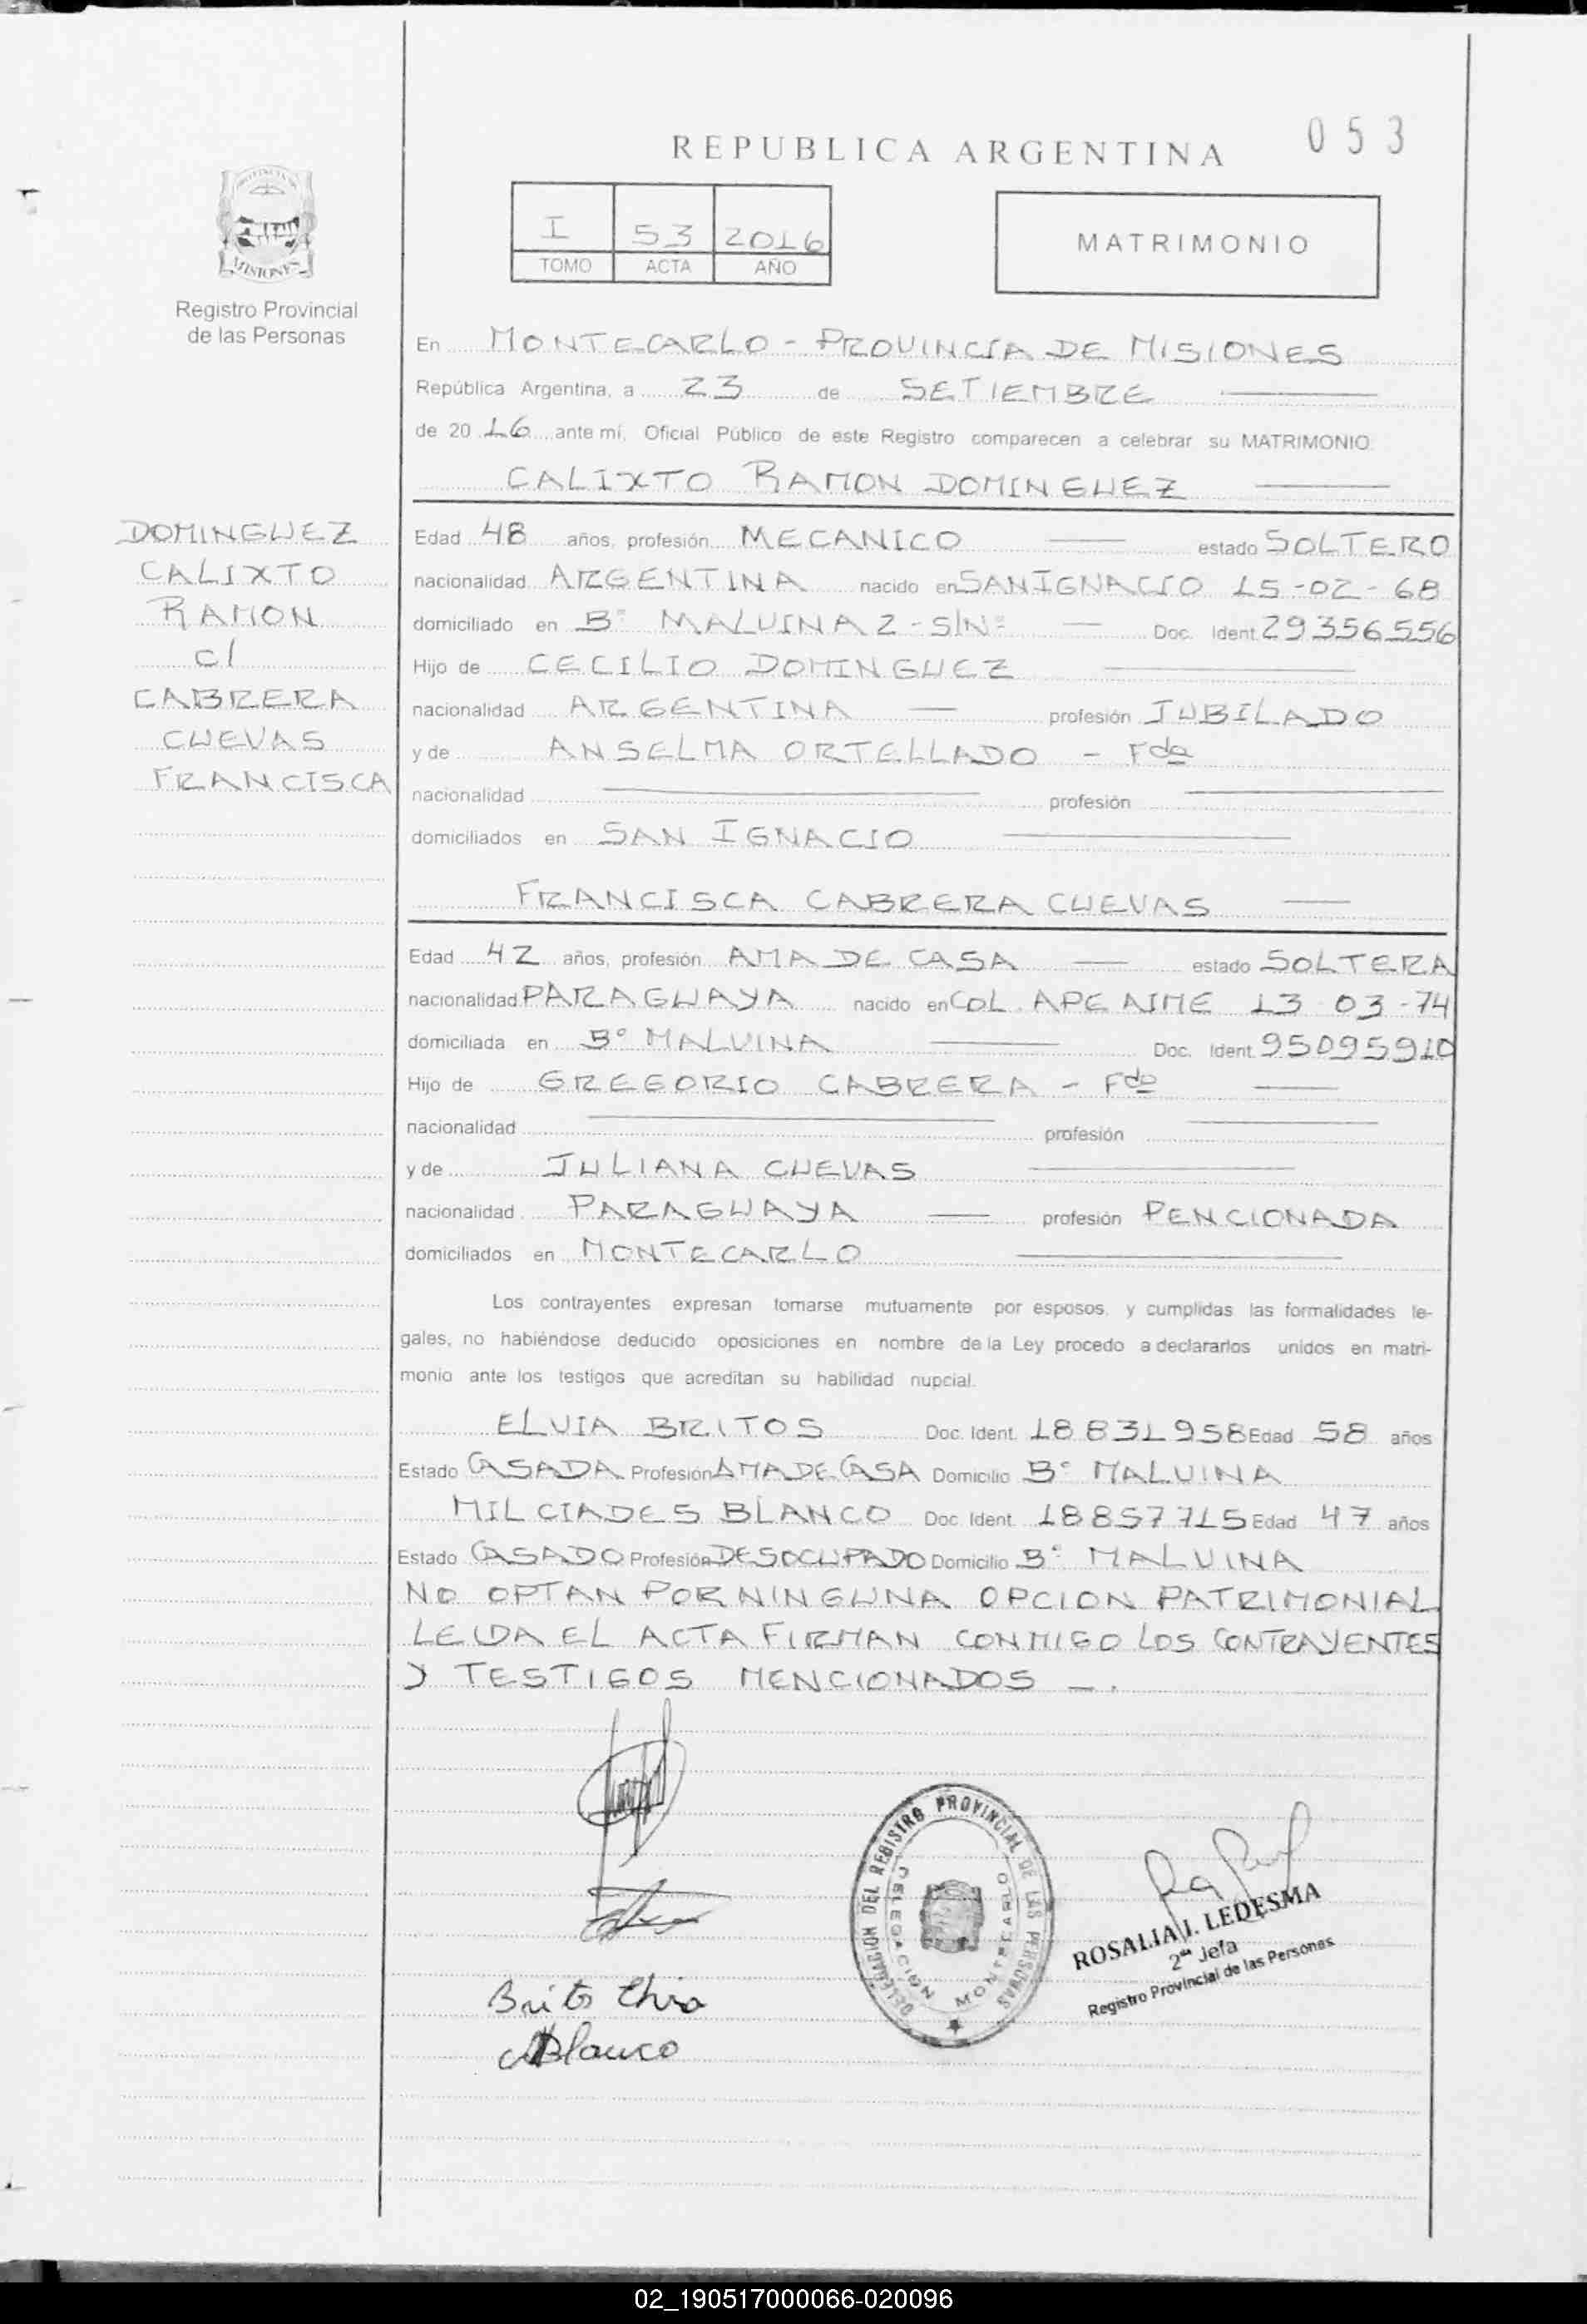 053
REPUBLICA ARGENTINA
I 53 2016
TOMO ACTA AÑO
MATRIMONIO
MISIONES
Registro Provincial
de las Personas
En MONTECARLO - PROVINCIA DE MISIONES
República Argentina, a 23 de SETIEMBRE
de 20 16 ante mí, Oficial Público de este Registro comparecen a celebrar su MATRIMONIO
CALIXTO RAMON DOMINGUEZ
DOMINGUEZ
CALIXTO
RAMON
c/
CABRERA
CUEVAS
FRANCISCA
Edad 48 años, profesión MECANICO estado SOLTERO
nacionalidad ARGENTINA nacido en SAN IGNACIO 15-02-68
domiciliado en B° MALUINA 2 - S/N° Doc. Ident. 29356556
Hijo de CECILIO DOMINGUEZ
nacionalidad ARGENTINA profesión JUBILADO
y de ANSELMA ORTELLADO - Fda
nacionalidad profesión
domiciliados en SAN IGNACIO
FRANCISCA CABRERA CUEVAS
Edad 42 años, profesión AMA DE CASA estado SOLTERA
nacionalidad PARAGUAYA nacido en COL. APE AIME 13-03-74
domiciliada en B° MALUINA Doc. Ident. 95095910
Hijo de GREGORIO CABRERA - Fdo
nacionalidad profesión
y de JULIANA CUEVAS
nacionalidad PARAGUAYA profesión PENCIONADA
domiciliados en MONTECARLO
Los contrayentes expresan tomarse mutuamente por esposos, y cumplidas las formalidades le-
gales, no habiéndose deducido oposiciones en nombre de la Ley procedo a declararlos unidos en matri-
monio ante los testigos que acreditan su habilidad nupcial.
ELVIA BRITOS Doc. Ident. 18831958 Edad 58 años
Estado CASADA Profesión AMA DE CASA Domicilio B° MALUINA
MILCIADES BLANCO Doc. Ident. 18857715 Edad 47 años
Estado CASADO Profesión DESOCUPADO Domicilio B° MALUINA
NO OPTAN POR NINGUNA OPCION PATRIMONIAL
LEIDA EL ACTA FIRMAN CONMIGO LOS CONTRAYENTES
Y TESTIGOS MENCIONADOS -.
DELEGACION DEL REGISTRO PROVINCIAL DE LAS PERSONAS
DELEGACION MONTECARLO
ROSALIA I. LEDESMA
2da Jefa
Registro Provincial de las Personas
Brito Elvia
Blanco
02_190517000066-020096